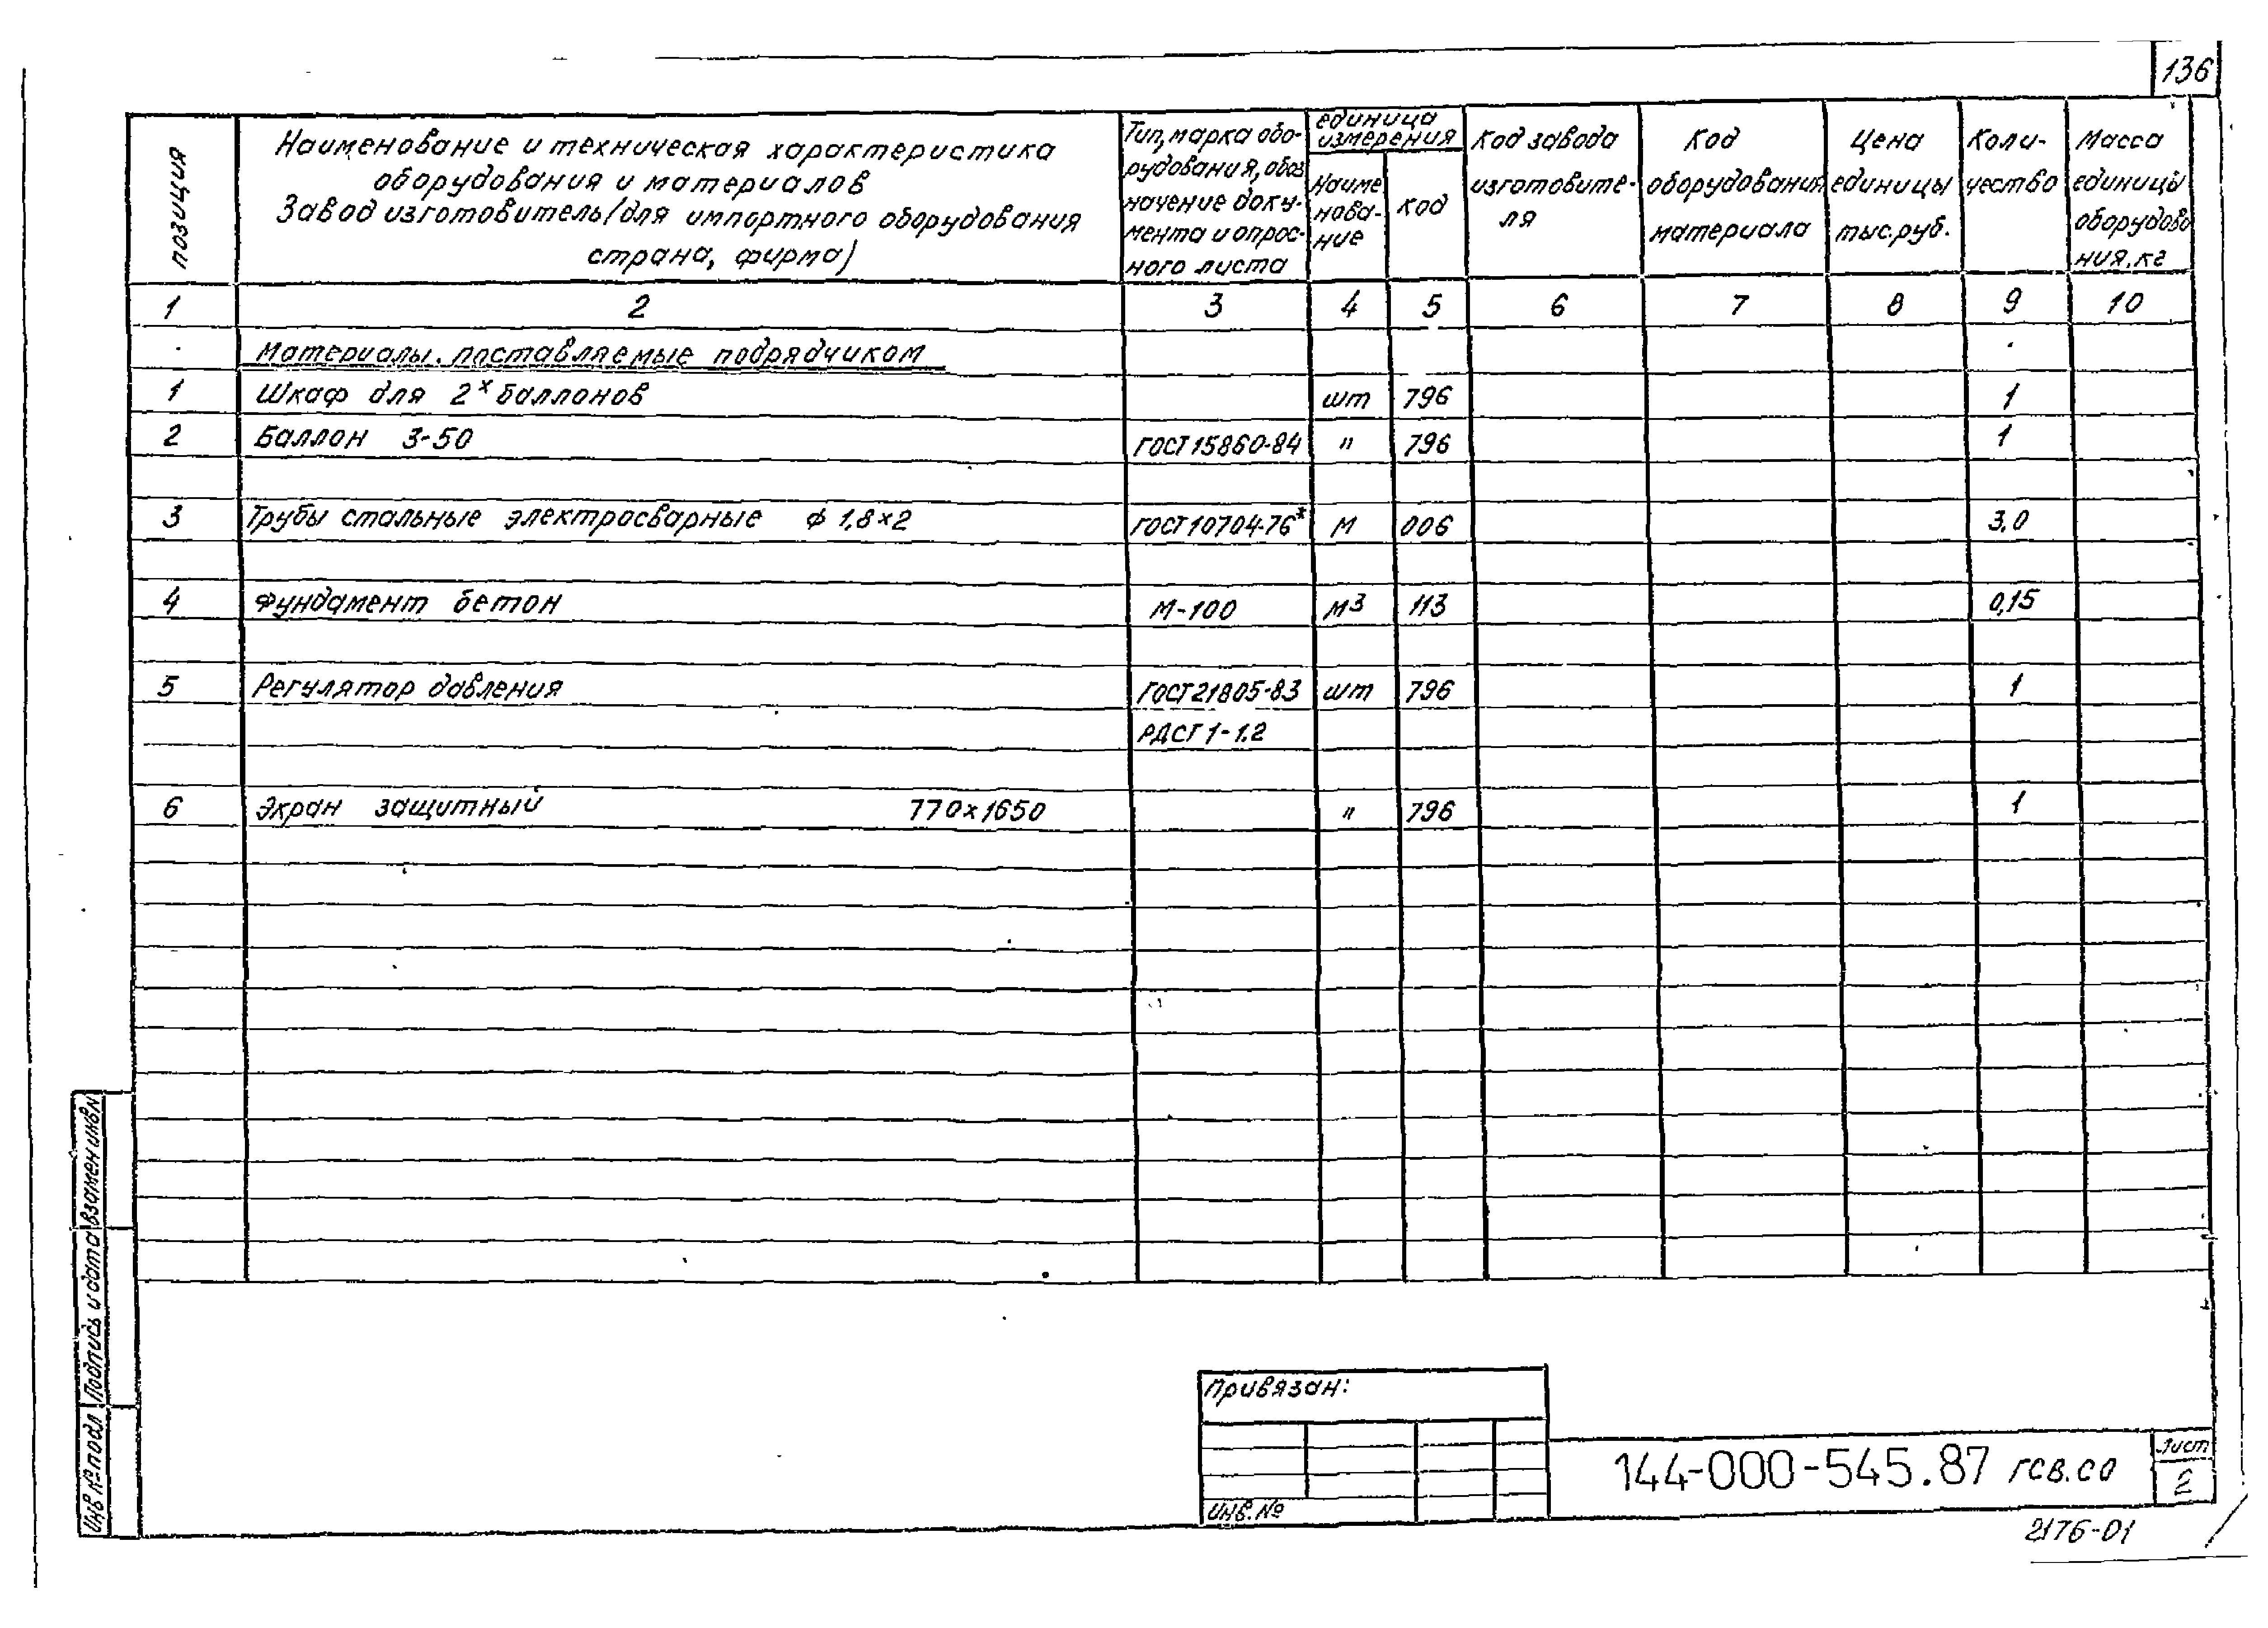 136
позиция
Наименование и техническая характеристика
оборудования и материалов
Завод изготовитель/для импортного оборудования
страна, фирма)
Тип, марка обо-
рудования, обоз
начение доку-
мента и опрос-
ного листа
единица
измерения
Наиме
нова-
ние
код
Код завода
изготовите-
ля
Код
оборудования
материала
Цена
единицы
тыс.руб.
Коли-
чество
Масса
единицы
оборудова
ния.кг
1 2 3 4 5 6 7 8 9 10
Материалы, поставляемые подрядчиком
1 Шкаф для 2х баллонов шт 796 1
2 Баллон 3-50 ГОСТ 15860-84 " 796 1
3 Трубы стальные электросварные ф 1,8×2 ГОСТ 10704-76* м 006 3,0
4 Фундамент бетон М-100 м3 113 0,15
5 Регулятор давления ГОСТ 21805-83 шт 796 1
РДСГ 1-1.2
6 Экран защитный 770х1650 " 796 1
взамен инв№
Подпись и дата
Инв № подл
Привязан:
Инв.№
144-000-545.87 гсв.со
Лист
2
2176-01